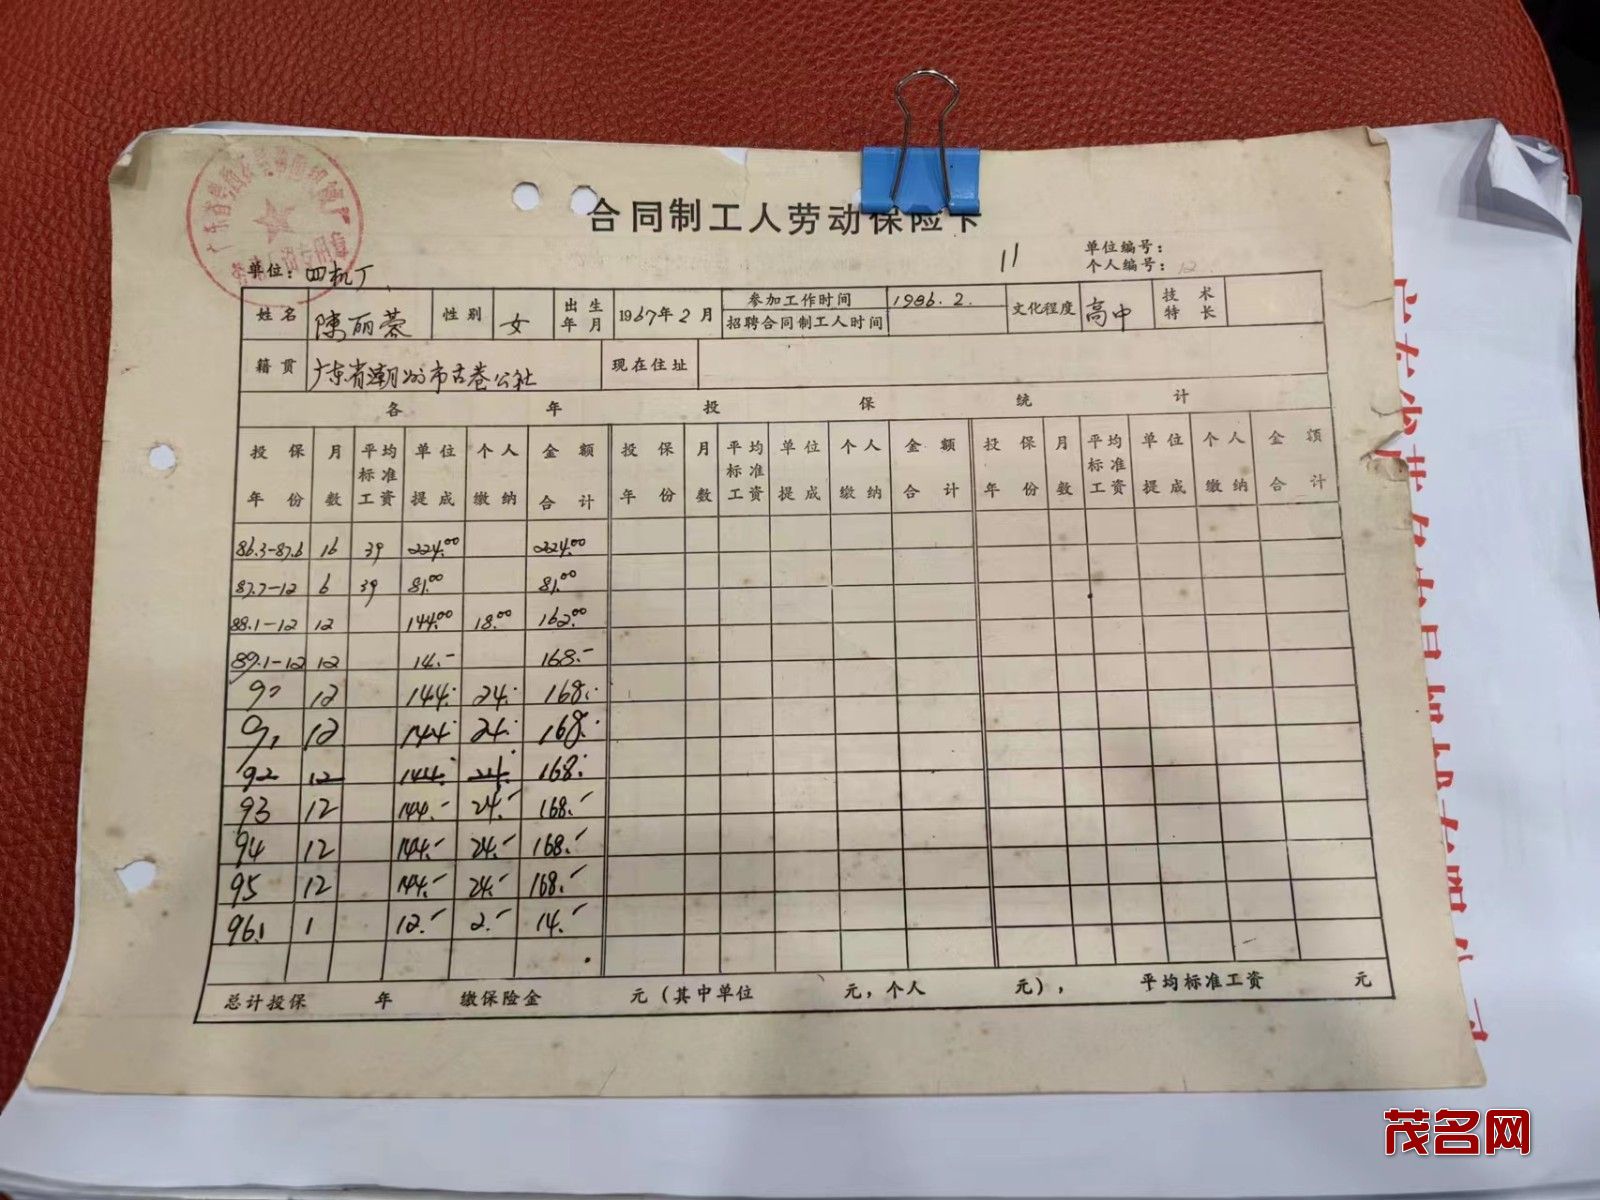 合同制工人劳动保险卡
11
单位编号：
个人编号：12
单位：四机厂
姓名 陈丽蓉 性别 女 出生年月 1967年2月 参加工作时间 1986.2. 招聘合同制工人时间 文化程度 高中 技术特长
籍贯 广东省潮州市古巷公社 现在住址
各年投保统计
投保年份 月数 平均标准工资 单位提成 个人缴纳 金额合计 投保年份 月数 平均标准工资 单位提成 个人缴纳 金额合计 投保年份 月数 平均标准工资 单位提成 个人缴纳 金额合计
86.3-87.6 16 39 224.00 224.00
87.7-12 6 39 81.00 81.00
88.1-12 12 144.00 18.00 162.00
89.1-12 12 14.- 168.-
90 12 144. 24. 168.
91 12 144. 24. 168.
92 12 144. 24. 168.
93 12 144.- 24.- 168.-
94 12 144.- 24.- 168.-
95 12 144.- 24.- 168.-
96.1 1 12.- 2.- 14.-
总计投保 年 缴保险金 元（其中单位 元，个人 元），平均标准工资 元
茂名网